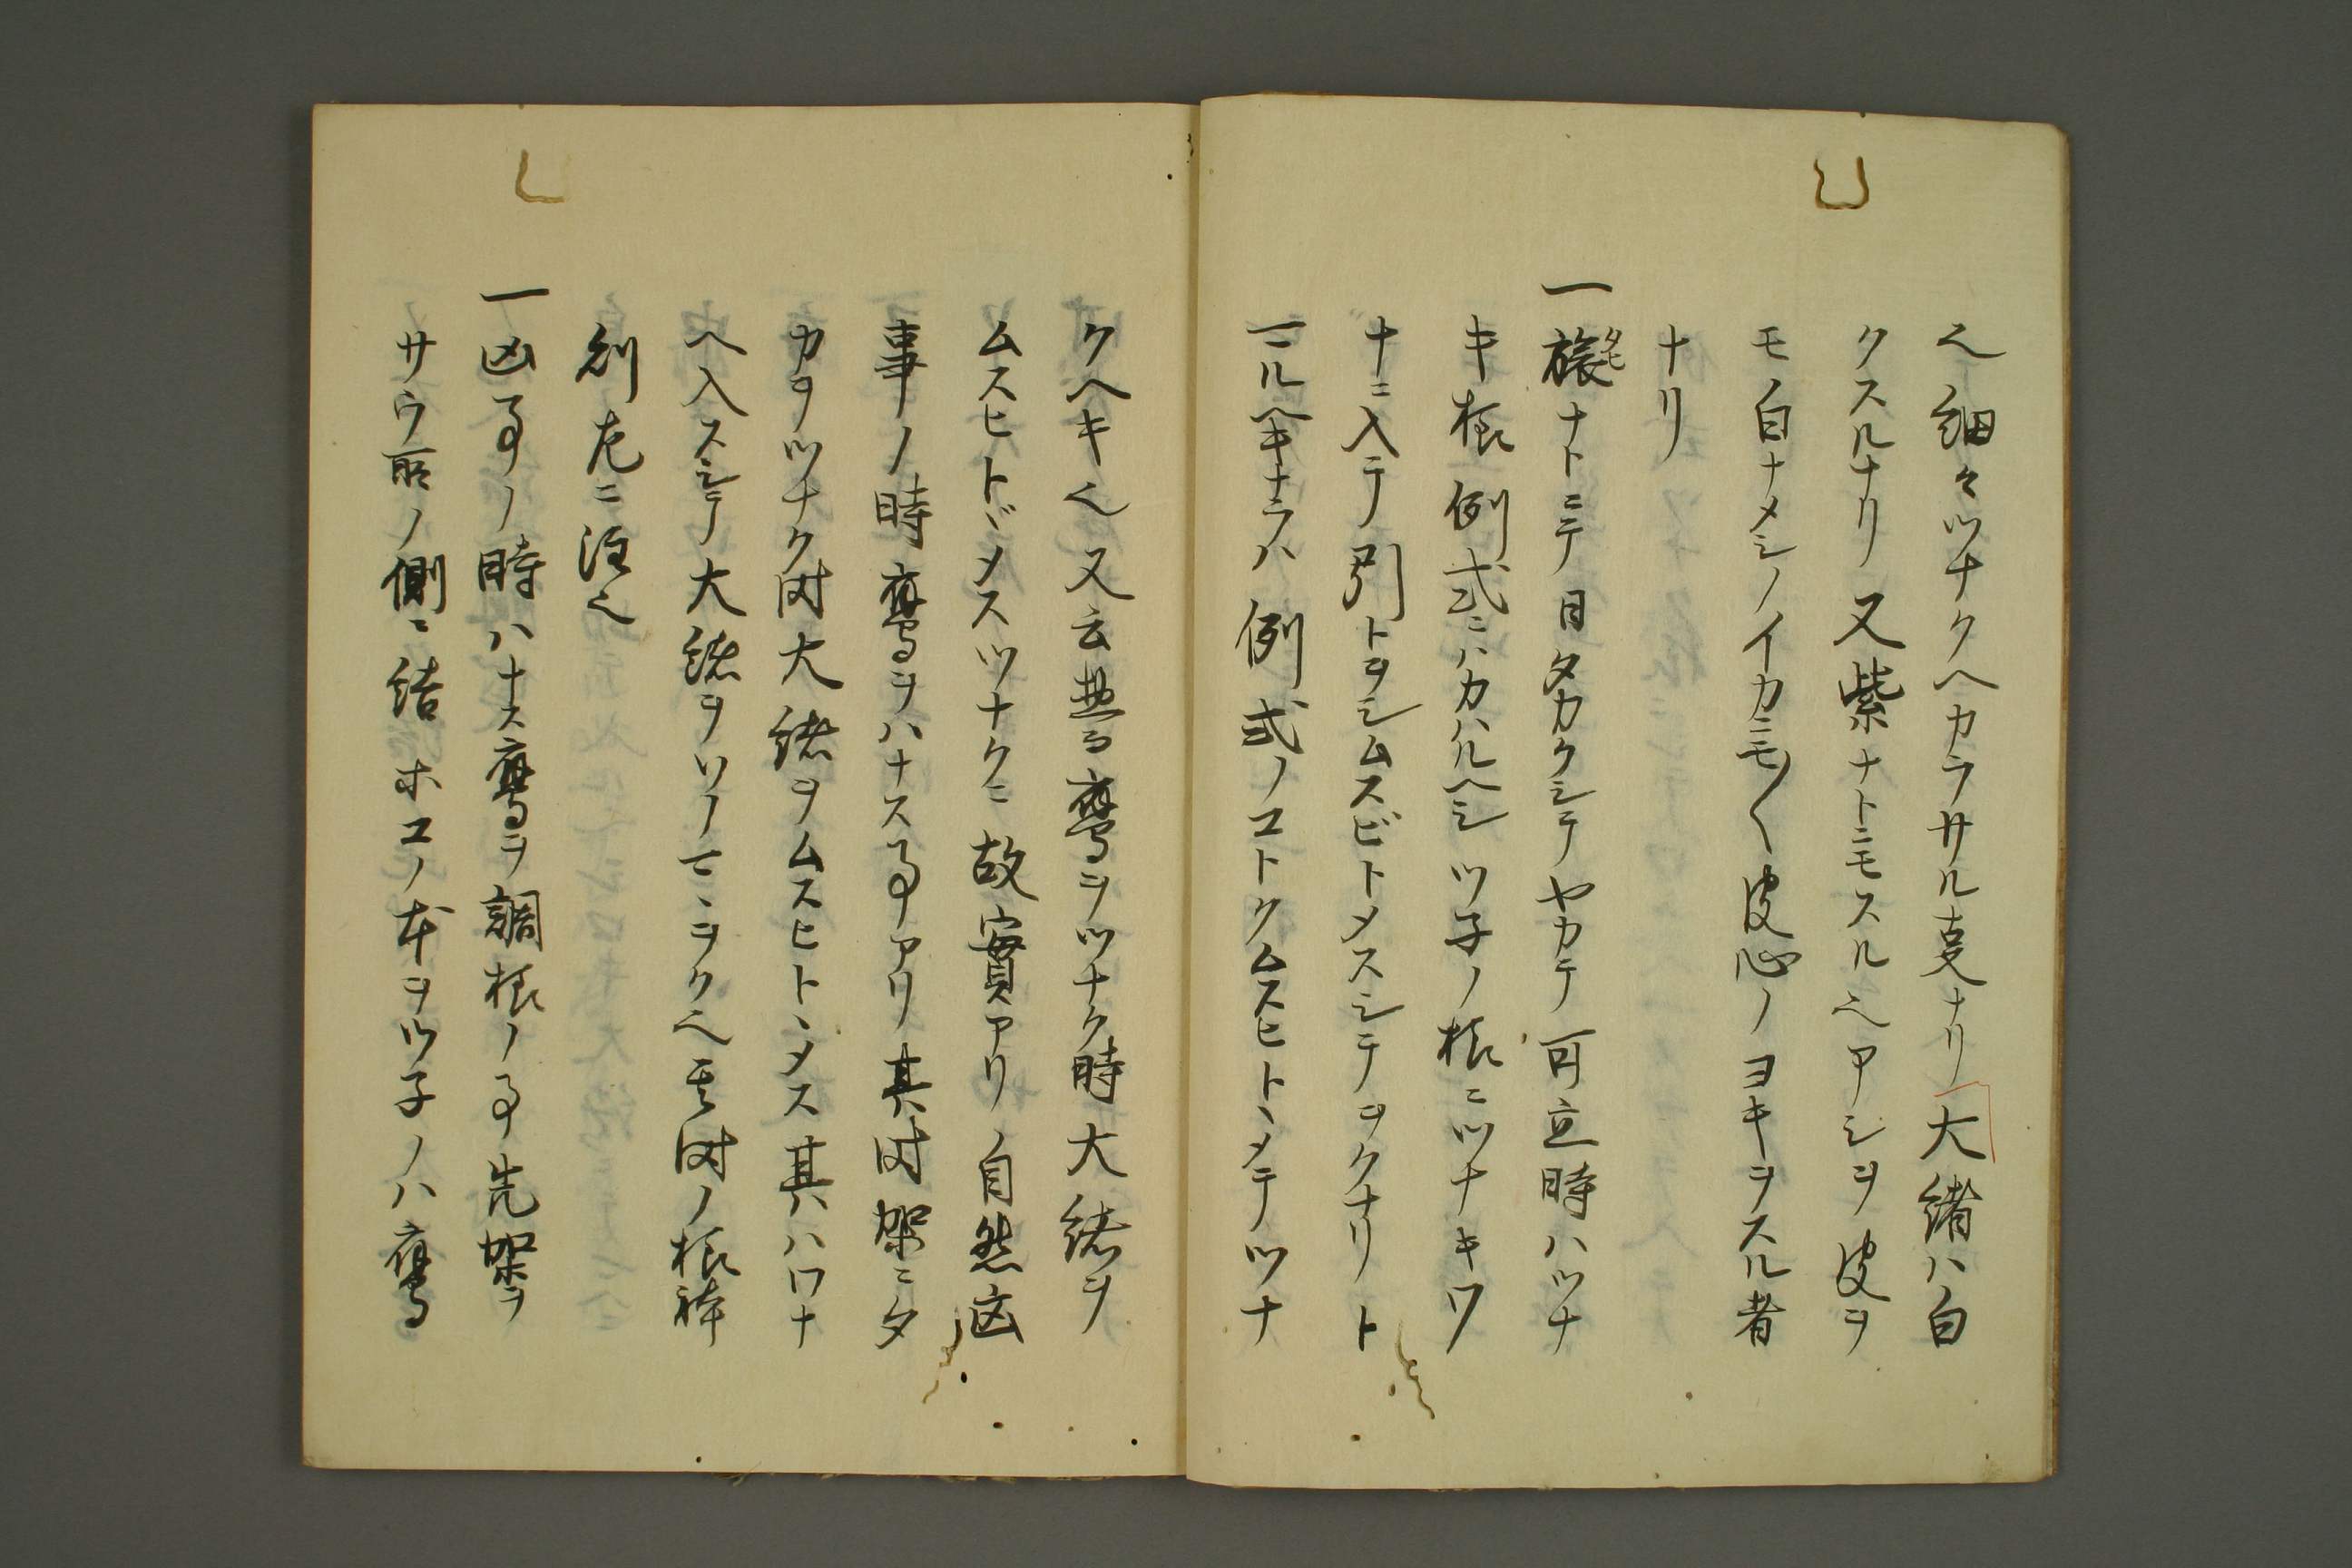 也細々ツナクヘカラサル支ナリ大緒ハ白
クスルナリ又紫ナトニモスル也アシヲ皮ヲ
モ白ナメシノイカニモ〱皮心ノヨキヲスル者
ナリ
一旅ナトニテ日タカクシテヤカテ可立時ハツナ
キ様例式ニハカハルヘシツ子ノ様ニツナキワ
ナニ入テ引トヲシムスビトメスシテヲクナリト
マルヘキナラハ例式ノコトクムスヒトヽメテツナ
クヘキ也又云サル鷹ヲツナク時大緒ヲ
ムスヒトヾメスツナクニ故實アリ自然凶
事ノ時鷹ヲハナス事アリ其時架ニタ
カヲツナク时大緒ヲムスヒトヽメス其ハワナ
ヘ入スシテ大緒ヲソノマヽヲクヘ其时ノ様躰
別左ニ注也
一凶事ノ時ハナス鷹ヲ調様ノ事先架ヲ
サウ所ノ側ニ結ホコノ本ヲツ子ノハ鷹